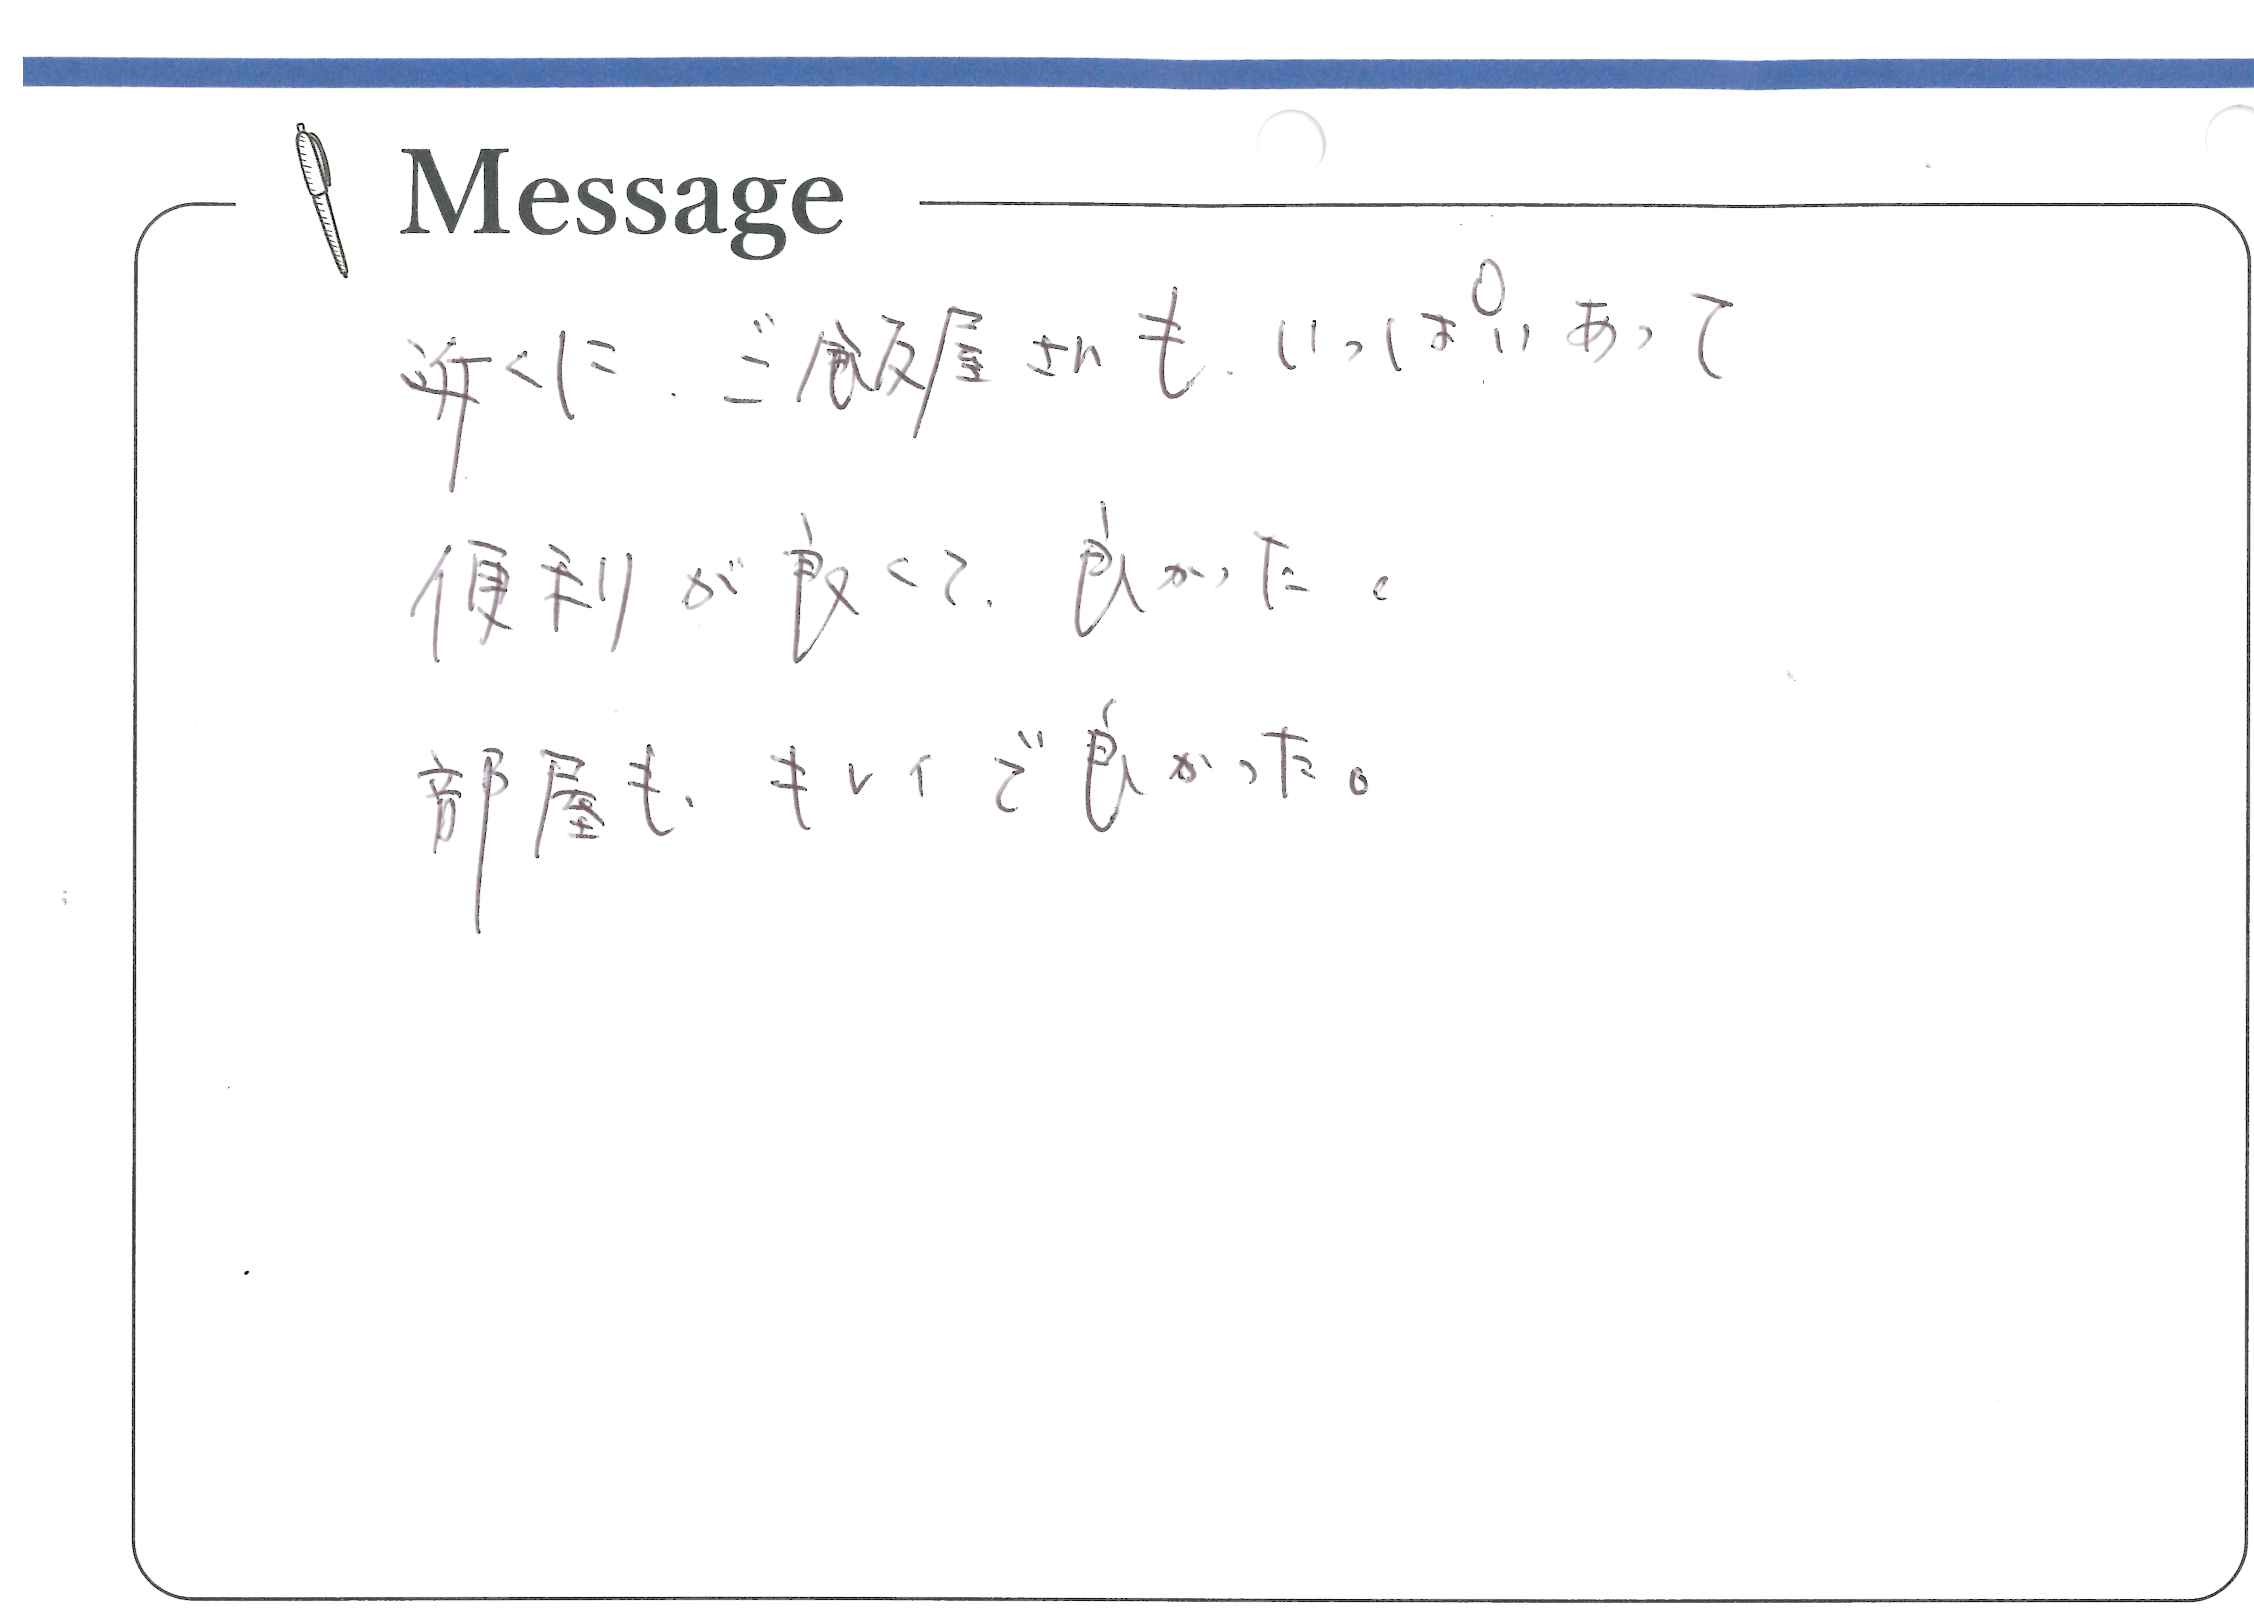 Message
近くに、ご飯屋さんも、いっぱいあって
便利が良くて、良かった。
部屋も、キレイで良かった。